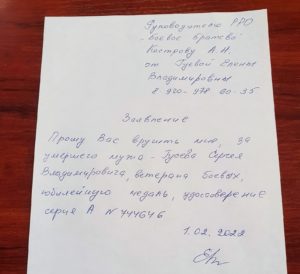 Руководителю РРО
"Боевое братство"
Кострову А.И.
от Гуевой Елены
Владимировны
8 920-978 60-35
Заявление
Прошу Вас вручить мне, за
умершего мужа - Гуева Сергея
Владимировича, ветерана боевых,
юбилейную медаль, удостоверение
серия А № 744646
1.02.2022